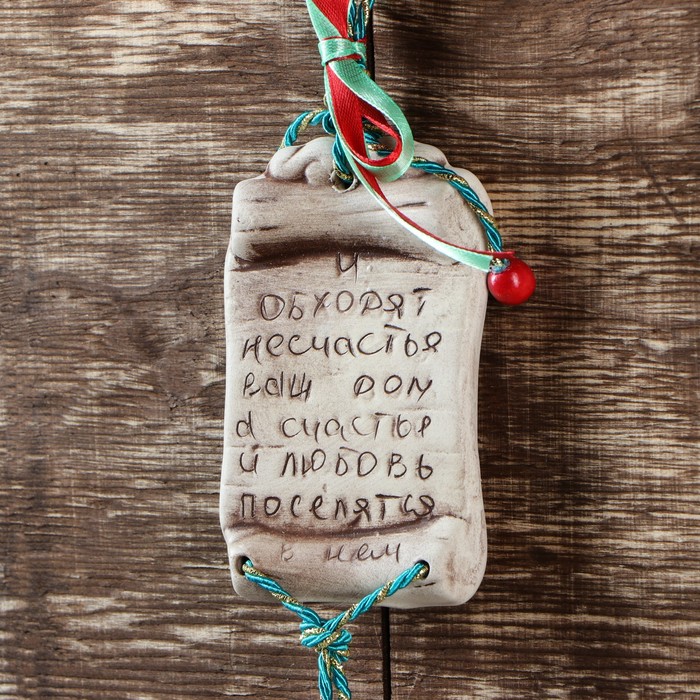 И
ОБХОДЯТ
несчастья
ваш дом
а счастье
и любовь
поселятся
в нем